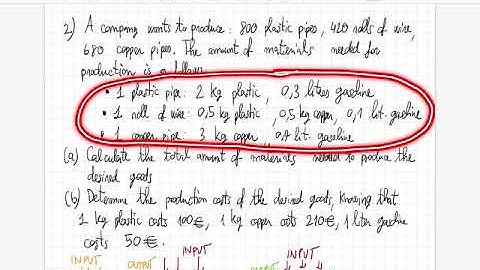 2) A company wants to produce: 800 plastic pipes, 420 rolls of wire,
680 copper pipes. The amount of materials needed for
production is as follows
• 1 plastic pipe: 2 kg plastic, 0,3 liters gasoline
• 1 roll of wire: 0,5 kg plastic, 0,5 kg copper, 0,1 lit. gasoline
• 1 copper pipe: 3 kg copper, lit. gasoline
(a) Calculate the total amount of materials needed to produce the
desired goods
(b) Determine the production costs of the desired goods, knowing that
1 kg plastic costs 100€, 1 kg copper costs 210€, 1 liter gasoline
costs 50€.
INPUT OUTPUT INPUT OUTPUT INPUT